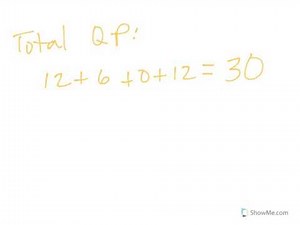 Total QP:
12+6+0+12=30
ShowMe.com